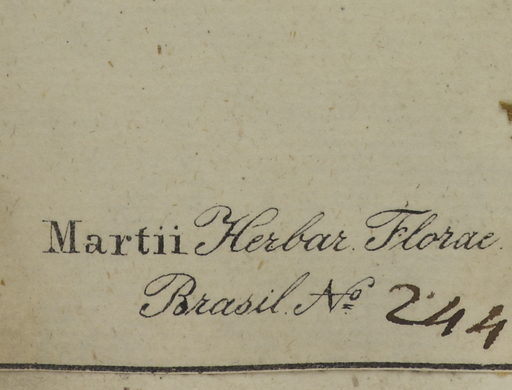 Martii Herbar. Florae.
Brasil. Nº 244